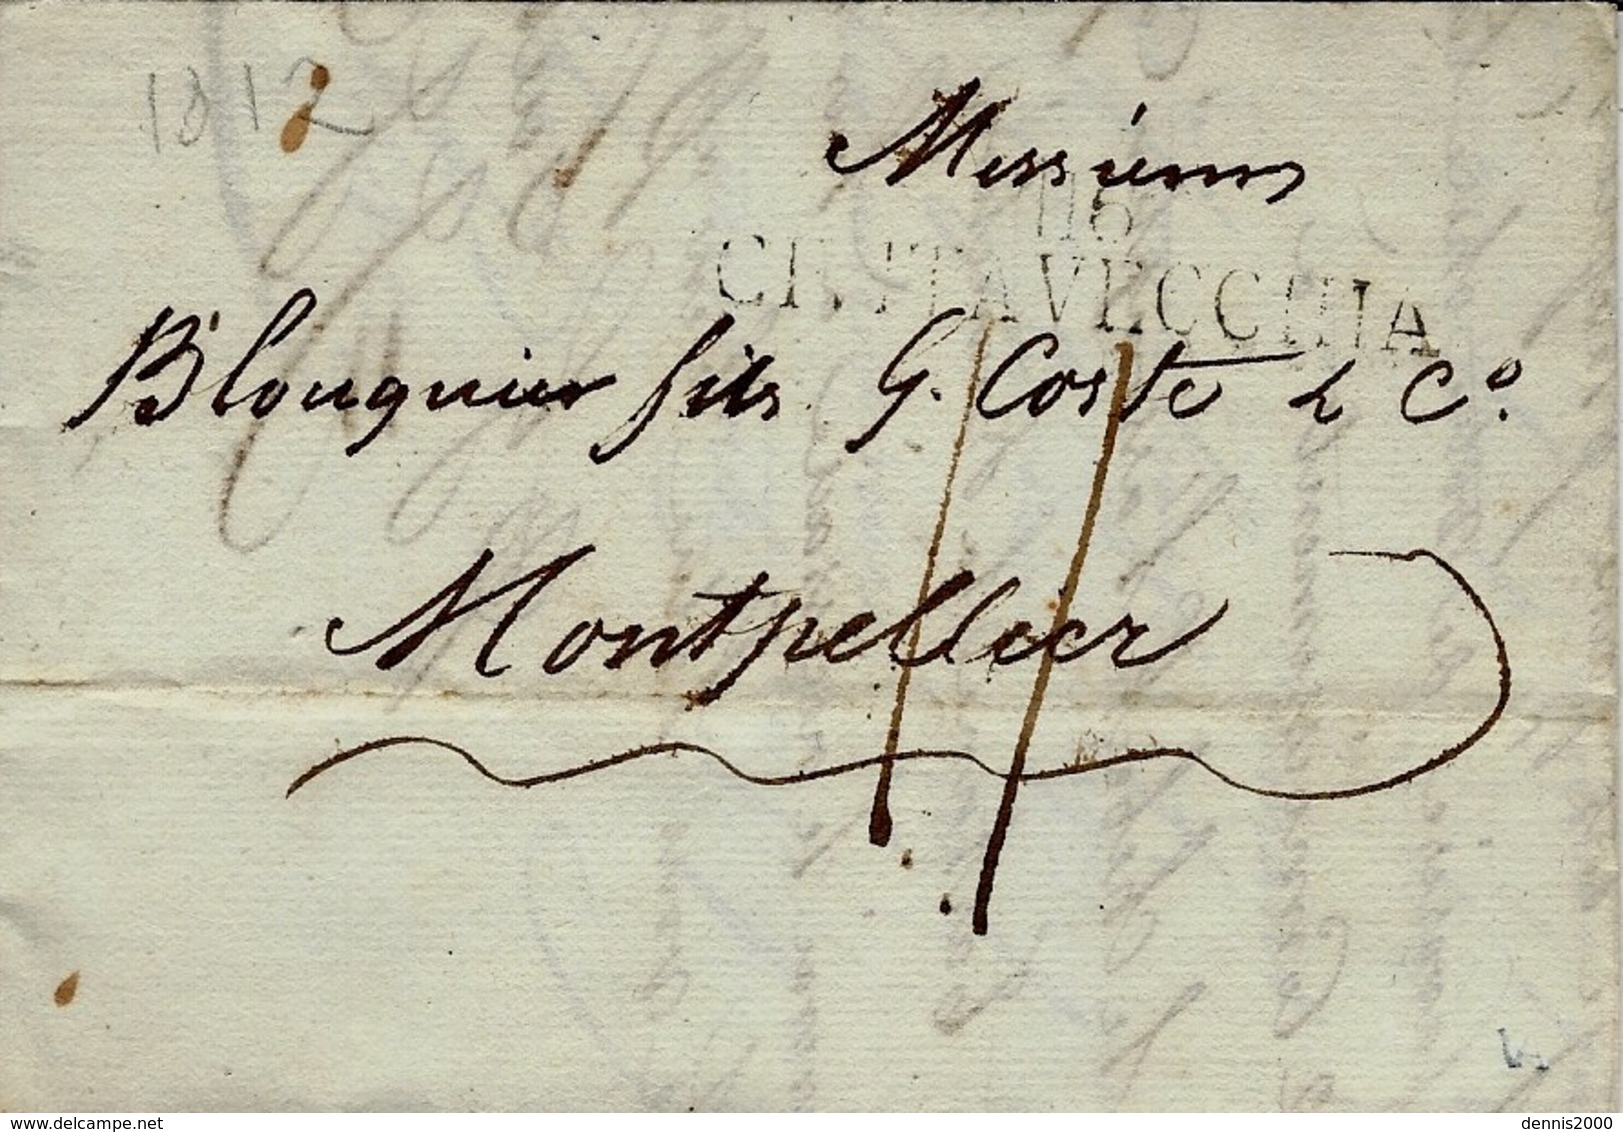 1812
Messieurs
116
CIVITAVECCHIA
Blouquier fils G. Coste & Cº.
11
Montpellier
delcampe.net
dennis2000